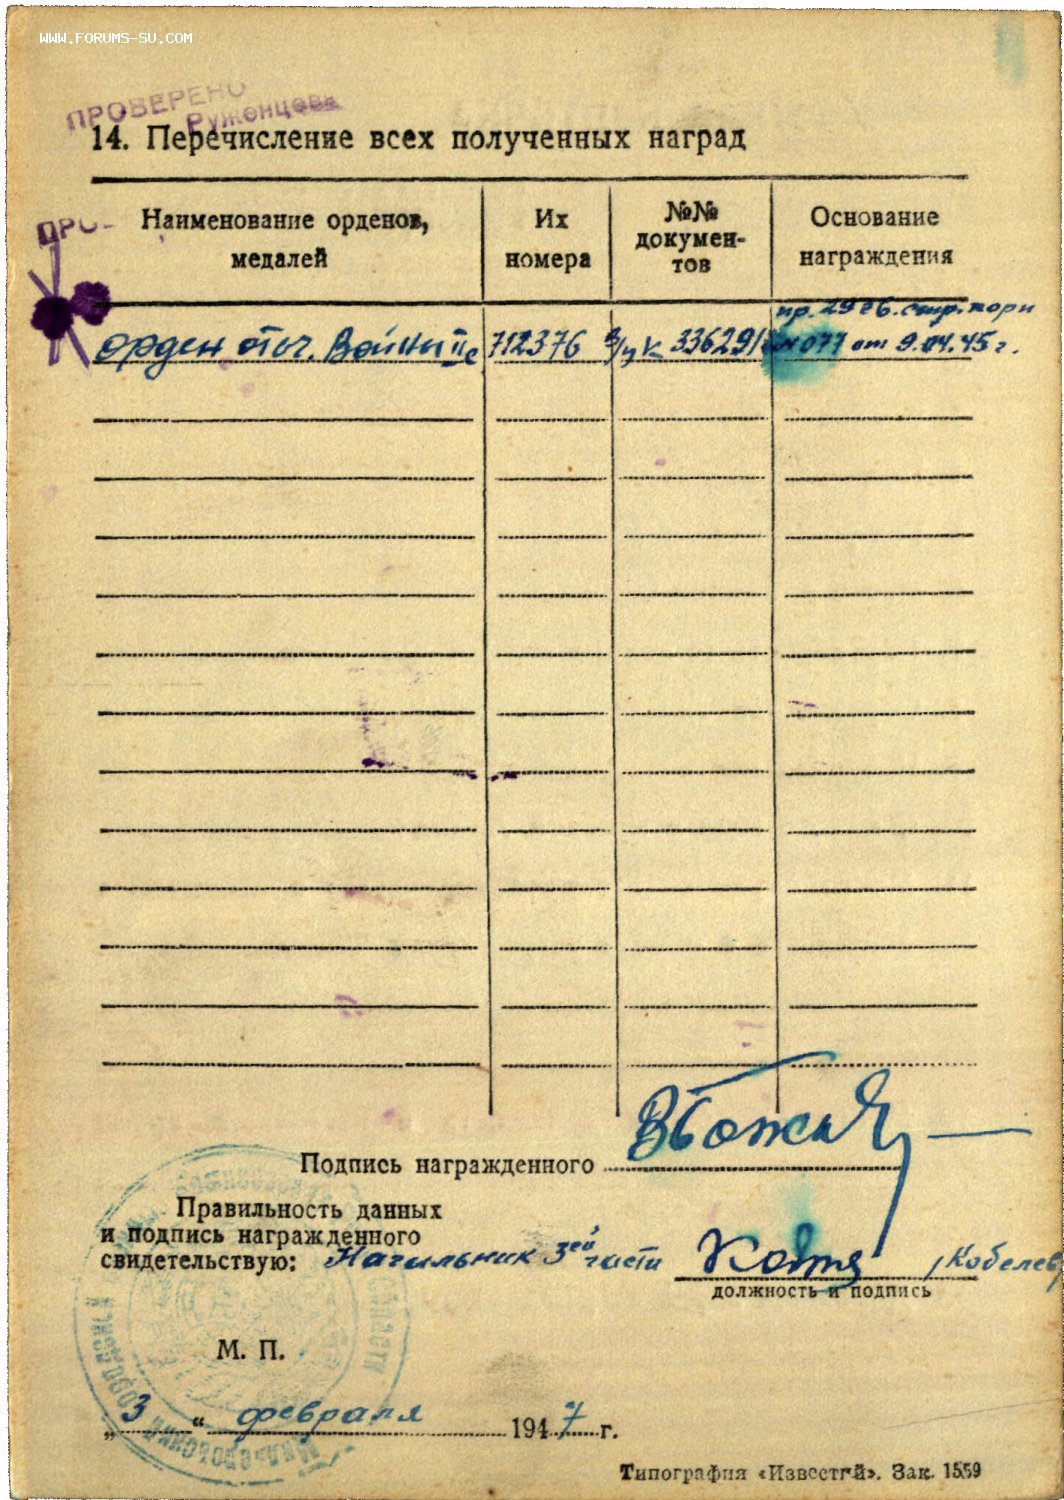 WWW.FORUMS-SU.COM
ПРОВЕРЕНО
Руженцева
14. Перечисление всех полученных наград
ПРО
Наименование орденов, медалей
Их номера
№№ докумен-тов
Основание награждения
орден отеч. Войны II с
712376
в/ц к 336291
пр. 29 гв. стр. корп
№ 077 от 9.04.45 г.
Подпись награжденного
Правильность данных
и подпись награжденного
свидетельствую: Начальник 3ей части
Кобелев
должность и подпись
М. П.
„ 3 “ февраля 1947 г.
Типография «Известий». Зак. 1559